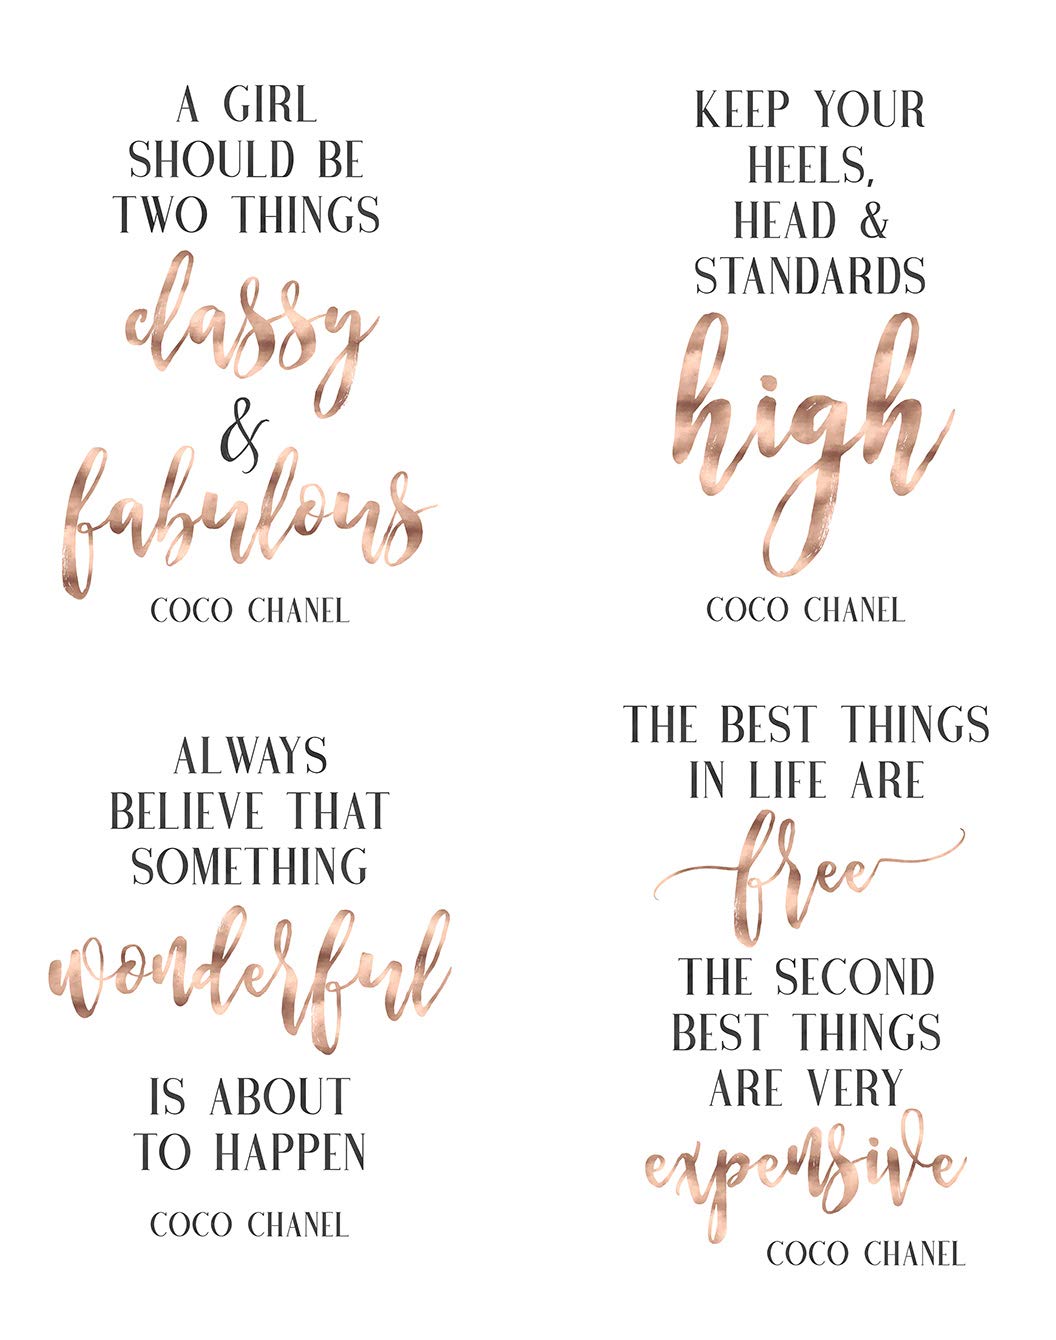 A GIRL
SHOULD BE
TWO THINGS
classy
&
fabulous
COCO CHANEL
KEEP YOUR
HEELS,
HEAD &
STANDARDS
high
COCO CHANEL
ALWAYS
BELIEVE THAT
SOMETHING
wonderful
IS ABOUT
TO HAPPEN
COCO CHANEL
THE BEST THINGS
IN LIFE ARE
free
THE SECOND
BEST THINGS
ARE VERY
expensive
COCO CHANEL